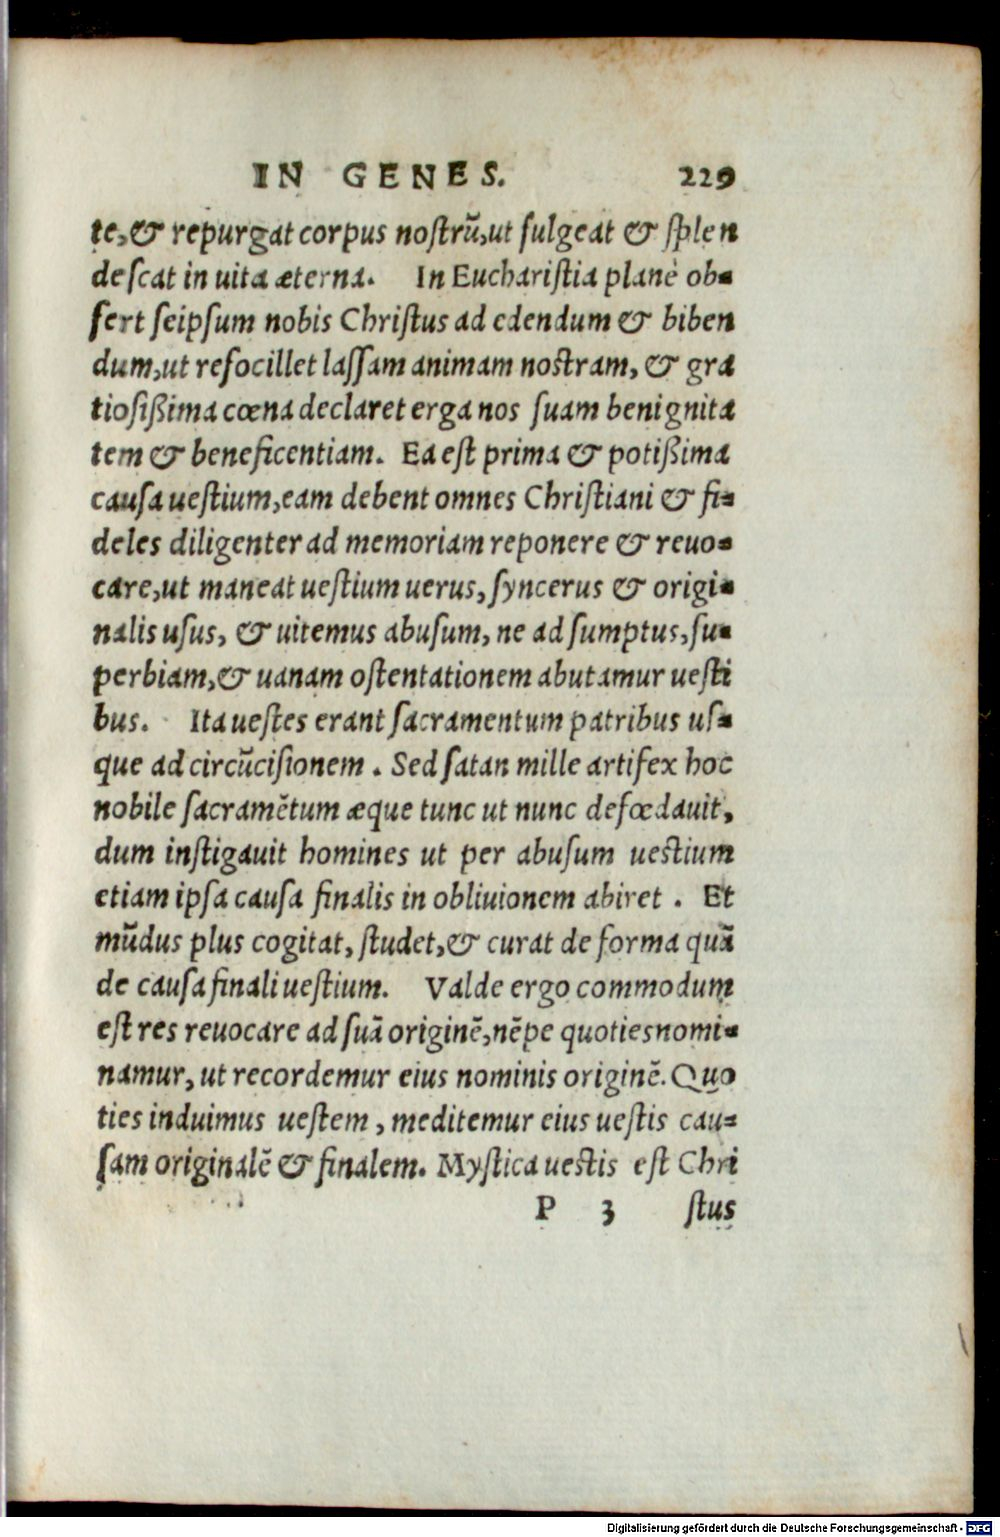 IN GENES. 229
te, & repurgat corpus nostrũ, ut fulgeat & splen
descat in uita æterna. In Eucharistia planè ob-
fert seipsum nobis Christus ad edendum & biben
dum, ut refocillet lassam animam nostram, & gra
tiosißima cœna declaret erga nos suam benignita
tem & beneficentiam. Ea est prima & potißima
causa uestium, eam debent omnes Christiani & fi-
deles diligenter ad memoriam reponere & reuo-
care, ut maneat uestium uerus, syncerus & origi-
nalis usus, & uitemus abusum, ne ad sumptus, su-
perbiam, & uanam ostentationem abutamur uesti
bus. Ita uestes erant sacramentum patribus us-
que ad circũcisionem. Sed satan mille artifex hoc
nobile sacramẽtum æque tunc ut nunc defœdauit,
dum instigauit homines ut per abusum uestium
etiam ipsa causa finalis in obliuionem abiret. Et
mũdus plus cogitat, studet, & curat de forma quã
de causa finali uestium. Valde ergo commodum
est res reuocare ad suã originẽ, nẽpe quoties nomi-
namur, ut recordemur eius nominis originẽ. Quo
ties induimus uestem, meditemur eius uestis cau-
sam originalẽ & finalem. Mystica uestis est Chri
P 3 stus
Digitalisierung gefördert durch die Deutsche Forschungsgemeinschaft - DFG